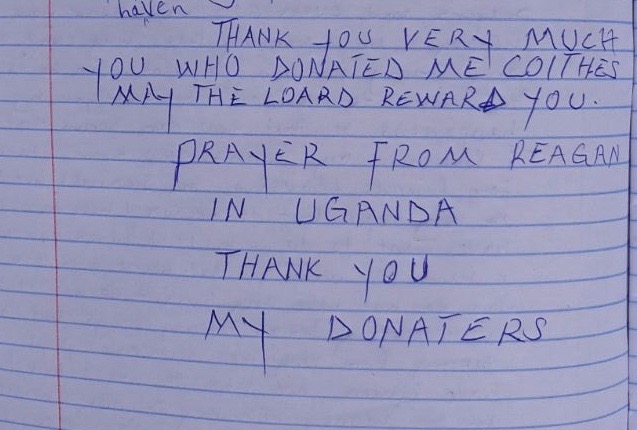 haven
THANK YOU VERY MUCH
YOU WHO DONATED ME COITHES
MAY THE LOARD REWARD YOU.
PRAYER FROM REAGAN
IN UGANDA
THANK YOU
MY DONATERS